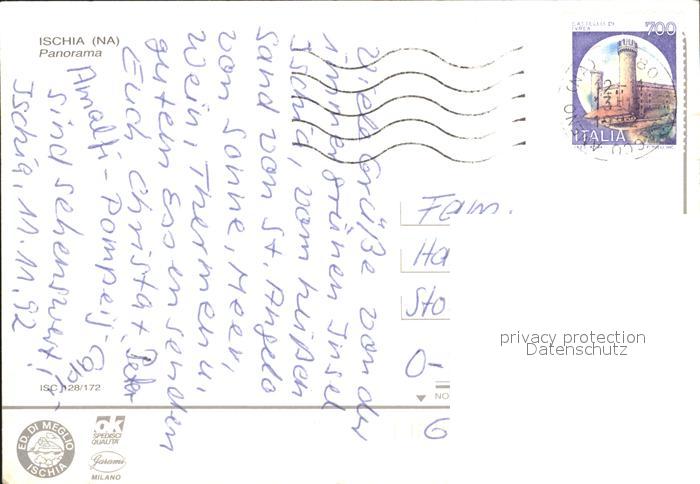 ISCHIA (NA)
Panorama
Viele Grüße von der
immergrünen Insel
Ischia, vom heißen
Sand von St. Angelo
von Sonne, Meer,
Wein, Thermen u.
gutem Essen senden
Euch Christa + Peter
Amalfi - Pompeij - Capri
sind sehenswert!
Ischia, 11.11.92
CASTELLO DI
IVREA
700
ITALIA
Fam.
Ha
Sto
O-
G
privacy protection
Datenschutz
ISC 128/172
NO
ED. DI MEGLIO
ISCHIA
ok
SPEDISCI
QUALITA'
Garami
MILANO